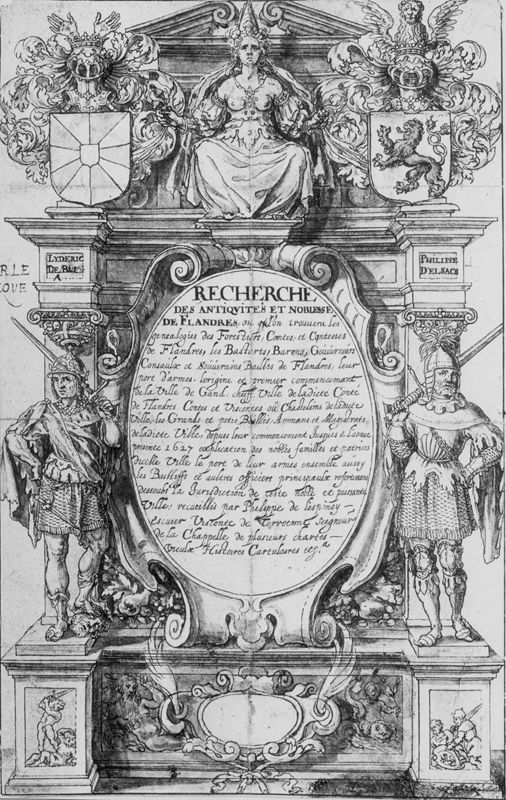 LYDERIC
DE BVC
PHILIPPE
D'ELSACS
RLE
RECHERCHE
DES ANTIQVITES ET NOBLESSE
DE FLANDRES. ou l'on trouvera les
genealogies des Forestiers, Comtes, et Contesses
de Flandres, les Bastarts, Barons, Gouverneurs
Consaulx et Souverains Baillis de Flandres, leur
port d'armes. lorigine et premier commencemant
de la Ville de Gand. cheff Ville de ladicte Conte
de Flandres Contes et Viscontes où Chastelains de ladicte
Ville, les Grands et petis Baillis, Ammans et Magistrats
de ladicte Ville, depuis leur commencement Jusques à Lannee
presente 1627 explication des nobles familles et patrices
dicelle Ville le port de leur armes ensemble aussy
les Bailiffs et aultres officiers principaulx
dessoubs la Jurisdiction de ceste noble et puissante
Ville, recueillis par Philippe de Lespinoy
Escuier Visconte de Terroenne Seigneur
de la Chappelle de plusieurs chartes
Vieulx Histoires Cartulaires etc.a